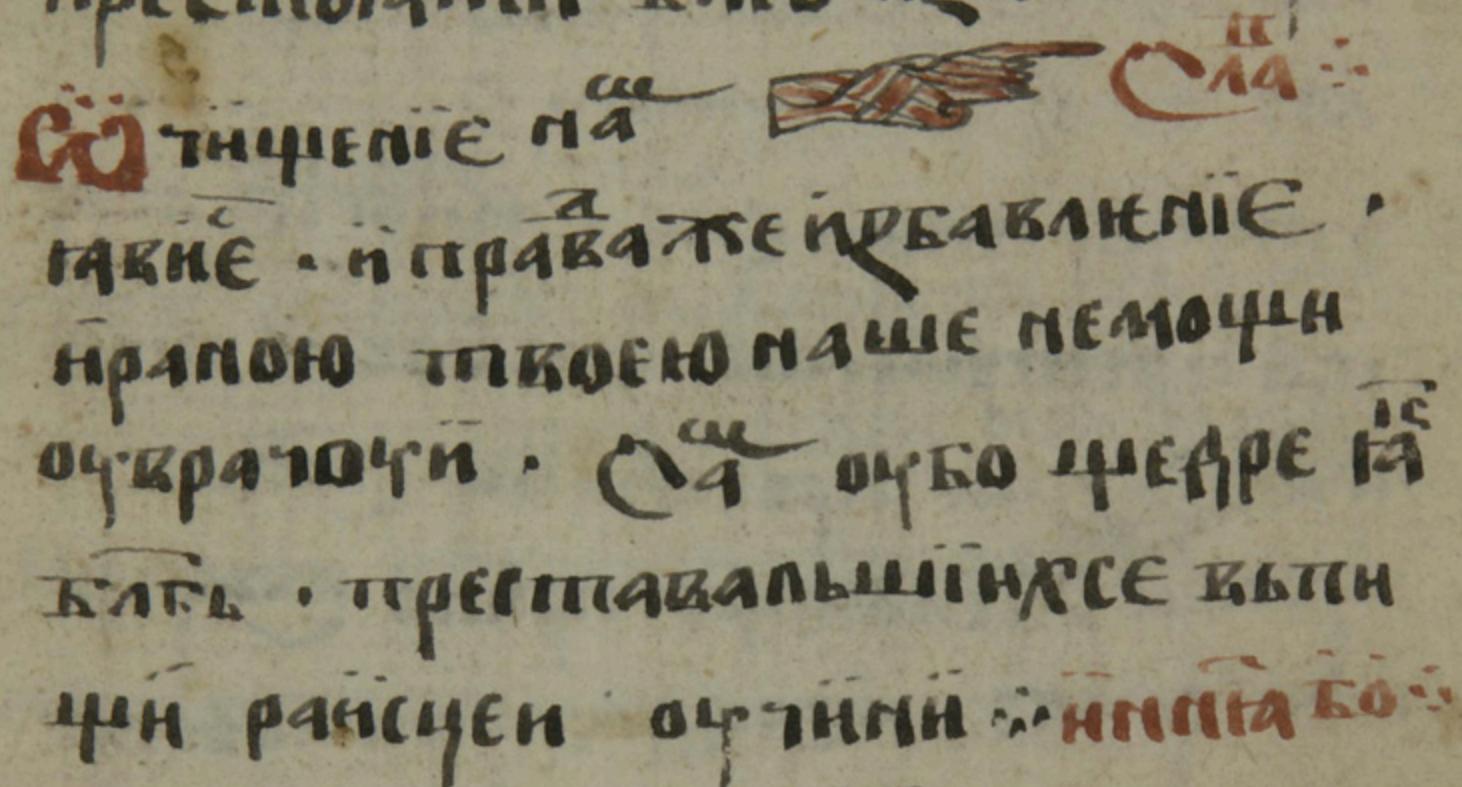 Ѡчищенїе на ш Сла п
ꙗвиⷭ҇є · и правда же иꙁбавлѥнїє ·
и раною твоею наше немощи
оуврачюуи · Са ш оубо щедре ꙗ іс
блгь · преставальшїихсе вьпи
щи раисцеи оучини ⁘ и нинꙗ бо ⁘